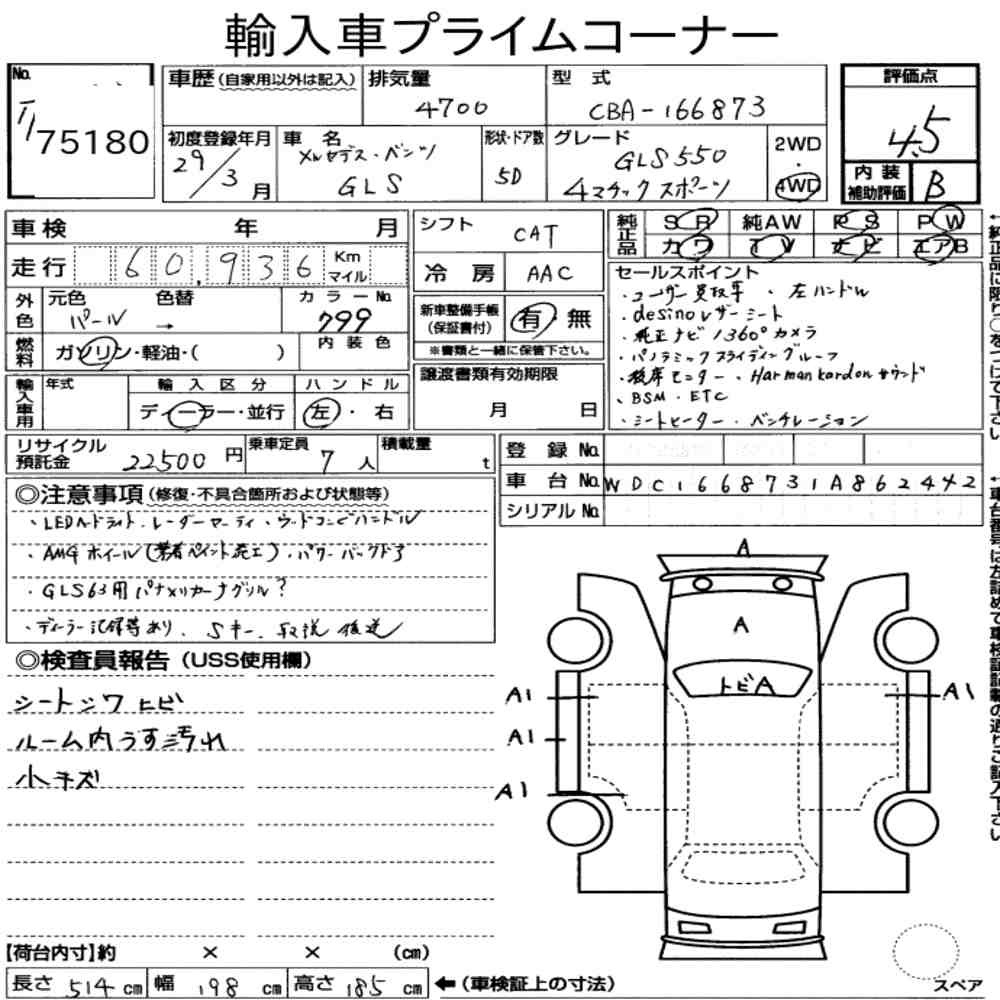 輸入車プライムコーナー
No.
75180
車歴 (自家用以外は記入)
排気量
4700
型 式
CBA-166873
評価点
4.5
初度登録年月
29/3月
車 名
メルセデス・ベンツ
GLS
形状・ドア数
5D
グレード
GLS550
4マチックスポーツ
2WD
・
4WD
内装
補助評価
B
車検 年 月
走行 60,936 Km
マイル
シフト CAT
冷 房 AAC
純正品
SR 純AW PS PW
カワ TV ナビ エアB
外色
元色 色替
パール →
カラーNo.
799
内装色
燃料
ガソリン・軽油・( )
新車整備手帳
(保証書付)
有・無
※書類と一緒に保管下さい。
輸入車用
年式
輸入区分
ディーラー・並行
ハンドル
左・右
譲渡書類有効期限
月 日
セールスポイント
・ユーザー買取車 ・左ハンドル
・designoレザーシート
・純正ナビ / 360°カメラ
・パノラミックスライディングルーフ
・後席モニター ・Harman kardonサウンド
・BSM ・ETC
・シートヒーター ・ベンチレーション
リサイクル
預託金
22500円
乗車定員
7人
積載量
t
登 録 No.
車 台 No. WDC1668731A862442
シリアル No.
◎注意事項 (修復・不具合箇所および状態等)
・LEDヘッドライト・レーダーセーフティ・ウッドコンビハンドル
・AMGホイール(業者ペイント施工)・パワーバックドア
・GLS63用パナメリカーナグリル?
・ディーラー記録等あり、Sキー、取説後送
◎検査員報告 (USS使用欄)
シートシワ ヒビ
ルーム内うす汚れ
小キズ
A
A
トビA
A1
A1
A1
A1
【荷台内寸】約 × × (cm)
長さ 514 cm 幅 198 cm 高さ 185 cm ←(車検証上の寸法)
スペア
←純正品に限り○をつけて下さい
←車台番号は左詰めで車検証記載の通りご記入下さい